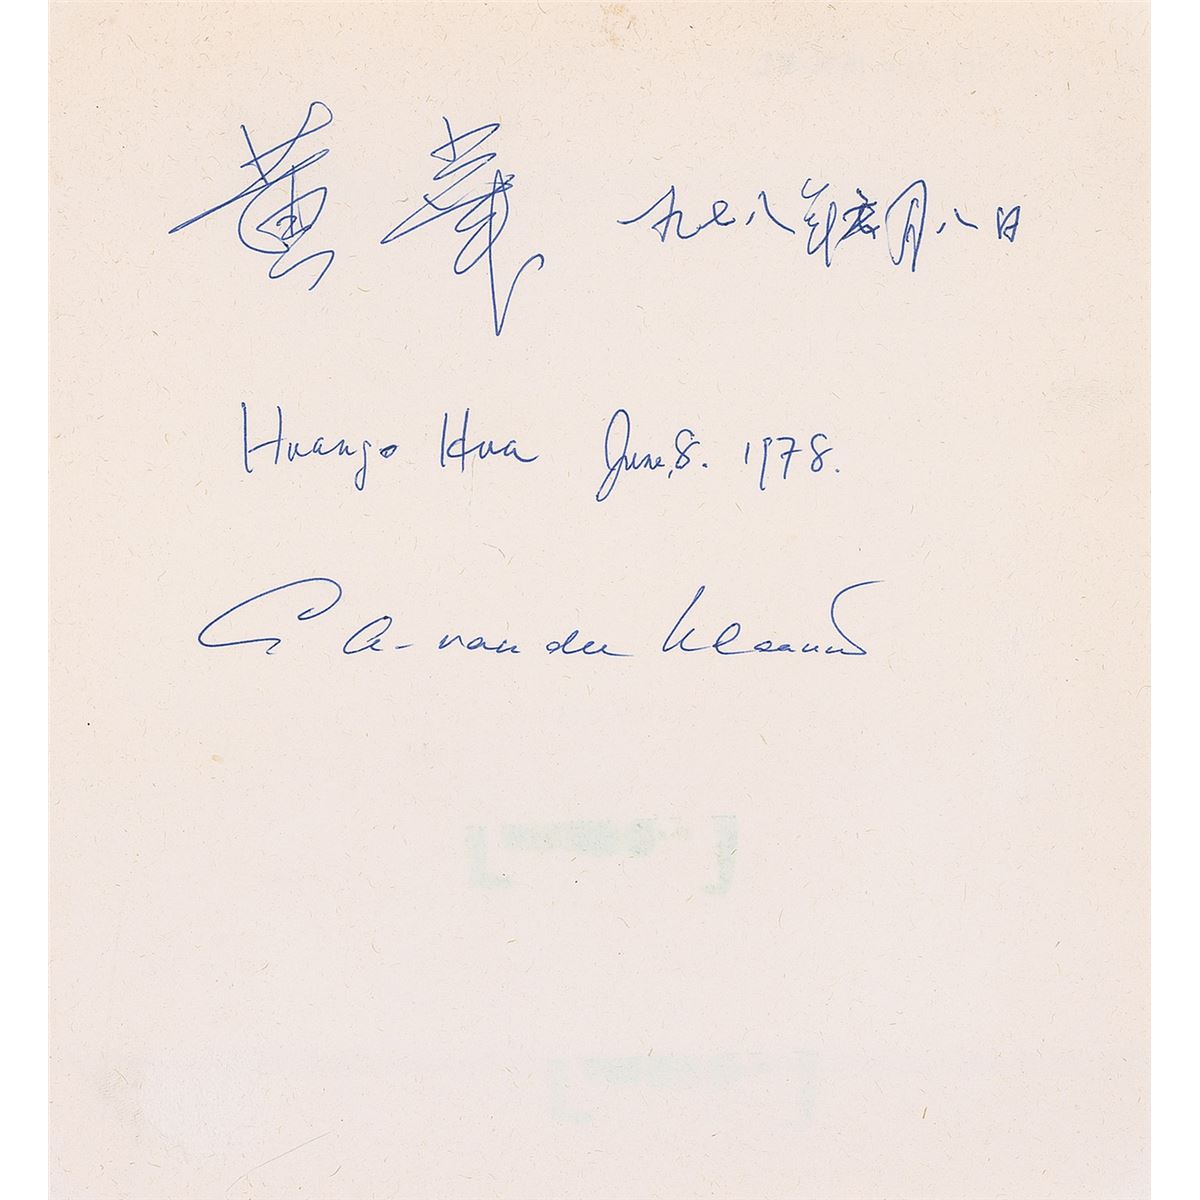 黄華 一九七八年六月八日
Huang Hua June, 8. 1978.
C. A. van der Klaauw